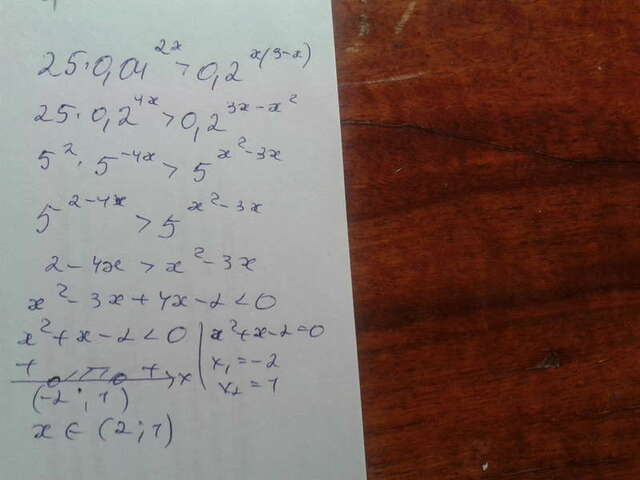 25·0,04^2x > 0,2^x(3-x)
25·0,2^4x > 0,2^3x-x²
5²·5^-4x > 5^x²-3x
5^2-4x > 5^x²-3x
2-4x > x²-3x
x²-3x+4x-2<0
x²+x-2<0 | x²+x-2=0
x₁=-2
+ - + x x₂=1
(-2; 1)
x ∈ (2;1)